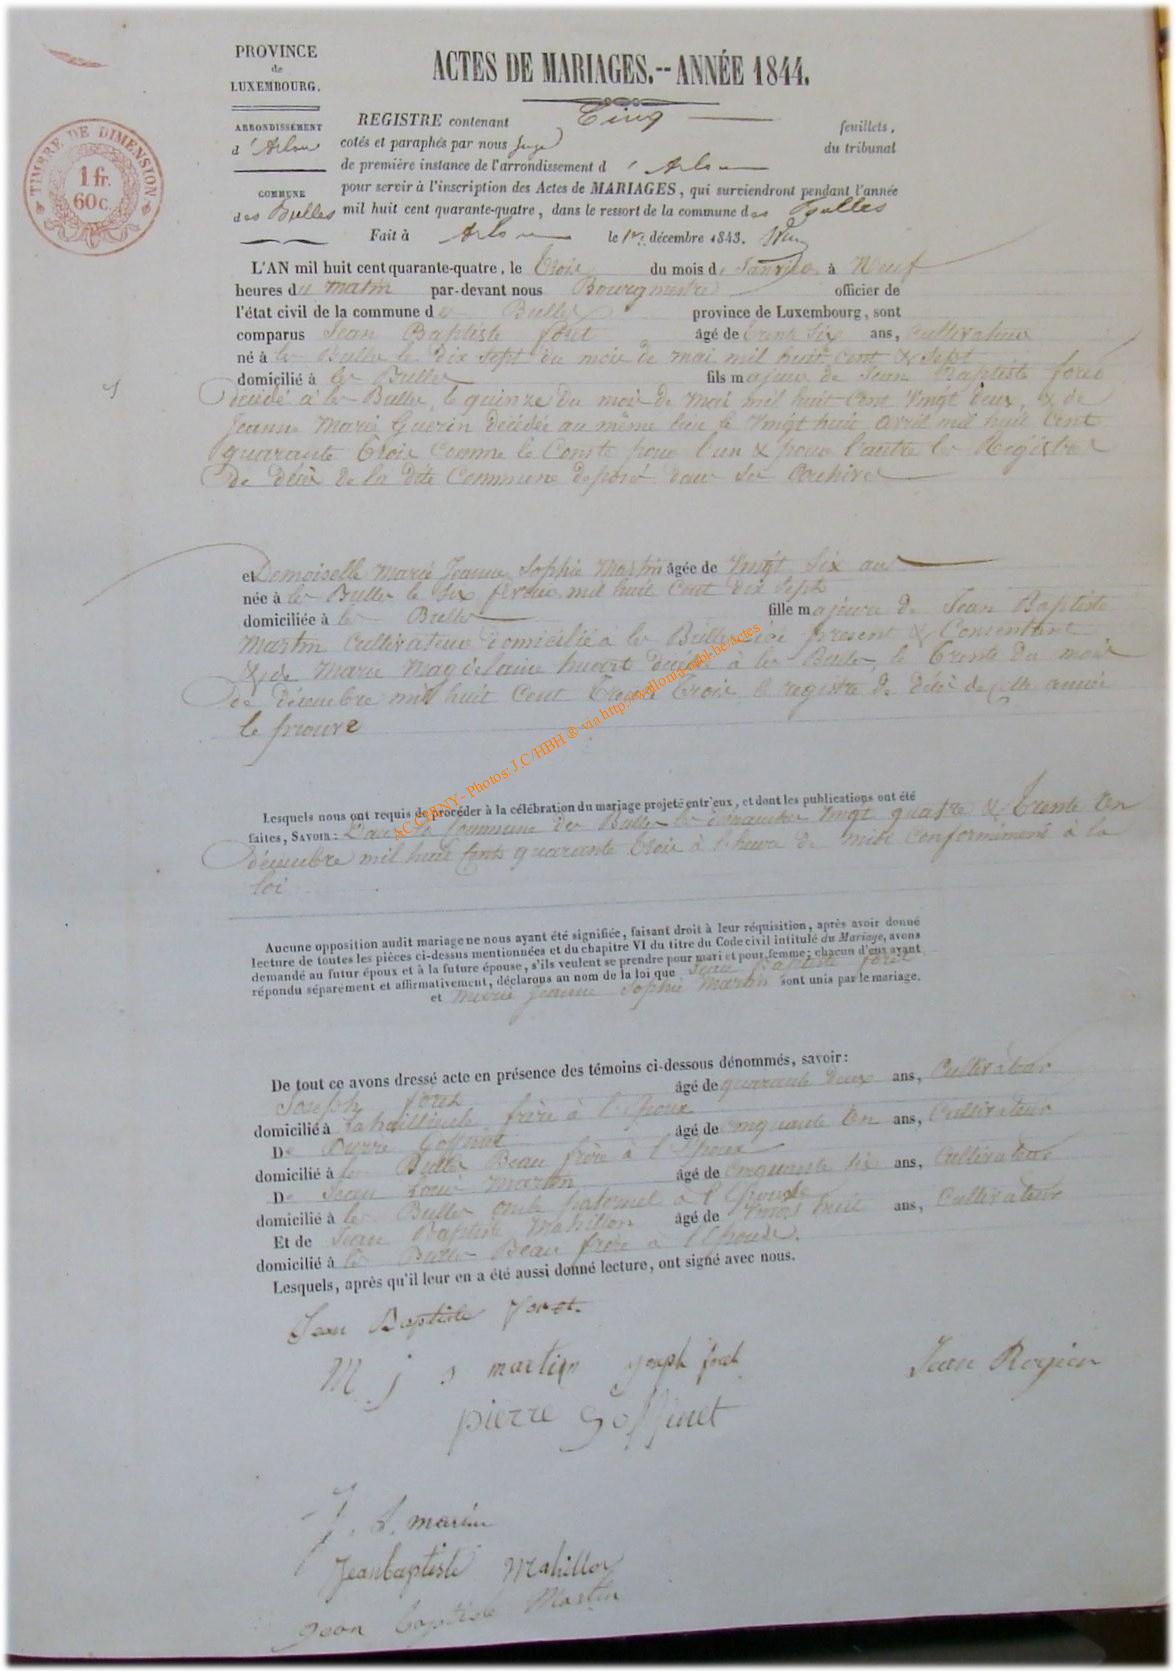 PROVINCE
de
LUXEMBOURG.
ARRONDISSEMENT
d'Arlon
COMMUNE
des Bulles
TIMBRE DE DIMENSION
1 fr.
60 c.
ACTES DE MARIAGES.-- ANNÉE 1844.
REGISTRE contenant Cinq feuillets,
cotés et paraphés par nous Juge du tribunal
de première instance de l'arrondissement d'Arlon
pour servir à l'inscription des Actes de MARIAGES, qui surviendront pendant l'année
mil huit cent quarante-quatre, dans le ressort de la commune des Bulles
Fait à Arlon le 1er décembre 1843.
L'AN mil huit cent quarante-quatre, le trois du mois de Janvier à Neuf
heures du matin par-devant nous Bourgmestre officier de
l'état civil de la commune de Bulles province de Luxembourg, sont
comparus Jean Baptiste foret âgé de trente six ans, Cultivateur
né à les Bulles le dix sept du mois de mai mil huit cent & sept
domicilié à les Bulles fils majeur de Jean Baptiste foret
décédé à les Bulles, le quinze du mois de Mai mil huit Cent Vingt deux, & de
Jeanne Marie Guerin décédée au même lieu le Vingt huit avril mil huit Cent
quarante trois comme le Conste pour l'un & pour l'autre les Régistres
de décès de la dite Commune déposé dans ses archives
et Demoiselle Marie Jeanne Sophie Martin âgée de Vingt Six ans
née à les Bulles le six mil huit Cent dix sept
domiciliée à les Bulles fille majeure de Jean Baptiste
Martin Cultivateur domicilié à les Bulles ici present & Consentant
& de Marie Magdelaine huart décédée à les Bulles, le trente du mois
de décembre mil huit Cent Trente Trois, le registre de décès de cette année
le prouve
Lesquels nous ont requis de procéder à la célébration du mariage projeté entr'eux, et dont les publications ont été
faites, Savoir: Dans la Commune des Bulles les dimanches Vingt quatre & Trente un
décembre mil huit Cent quarante trois à l'heure de midi conformément à la
loi
Aucune opposition audit mariage ne nous ayant été signifiée, faisant droit à leur réquisition, après avoir donné
lecture de toutes les pièces ci-dessus mentionnées et du chapitre VI du titre du Code civil intitulé du Mariage, avons
demandé au futur époux et à la future épouse, s'ils veulent se prendre pour mari et pour femme; chacun d'eux ayant
répondu séparément et affirmativement, déclarons au nom de la loi que Jean Baptiste foret
et Marie Jeanne Sophie Martin sont unis par le mariage.
De tout ce avons dressé acte en présence des témoins ci-dessous dénommés, savoir:
Joseph foret âgé de quarante deux ans, Cultivateur
domicilié à frère à l'Epoux
De Pierre Goffinet âgé de cinquante un ans, Cultivateur
domicilié à les Bulles Beau frère à l'Epoux
De Jean Louis Martin âgé de cinquante six ans, Cultivateur
domicilié à les Bulles oncle paternel à l'Epouse
Et de Jean Baptiste Mahillon âgé de Vingt huit ans, Cultivateur
domicilié à les Bulles Beau frère à l'Epouse.
Lesquels, après qu'il leur en a été aussi donné lecture, ont signé avec nous.
Jean Baptiste foret.
M j s martin joseph foret Jean Rogier
pierre Goffinet
J. L. martin
Jean baptiste Mahillon
jean baptiste Martin